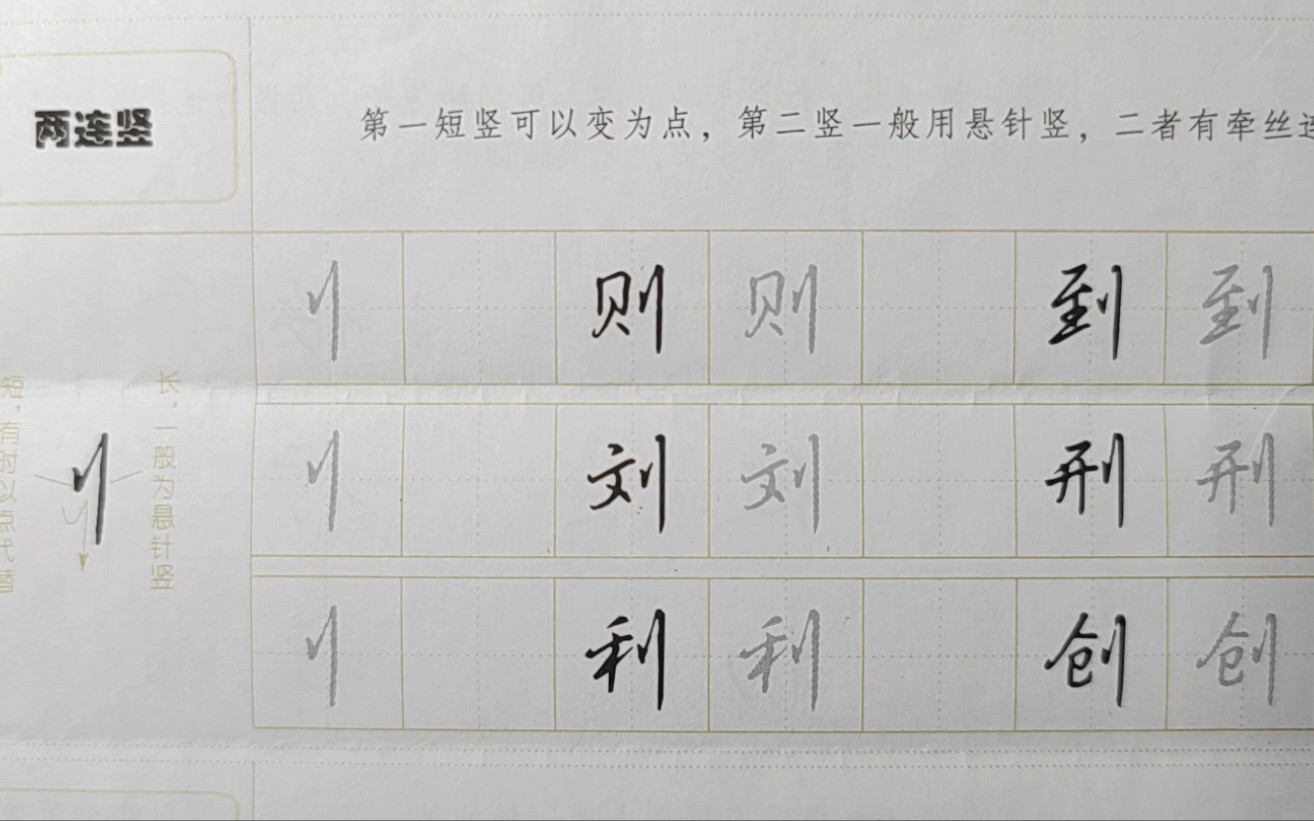 两连竖
第一短竖可以变为点，第二竖一般用悬针竖，二者有牵丝连
刂 则 则 到 到
短，有时以点代替
刂
长，一般为悬针竖
刂 刘 刘 刑 刑
刂 利 利 创 创